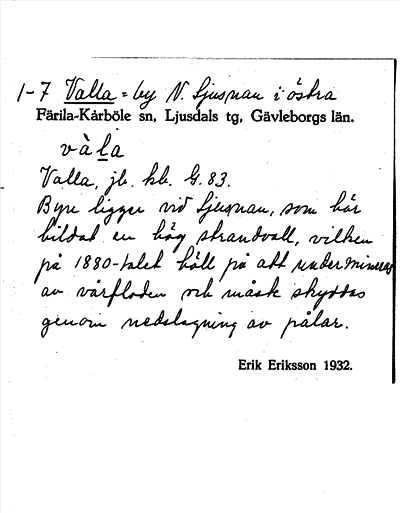 1-7 Valla = by N. Ljusnan i östra
Färila-Kårböle sn, Ljusdals tg, Gävleborgs län.
vàla
Valla, jb. kb. G. 83.
Byn ligger vid Ljusnan, som här
bildat en hög strandvall, vilken
på 1880-talet höll på att undermineras
av vårfloden och måste skyddas
genom nedslagning av pålar.
Erik Eriksson 1932.